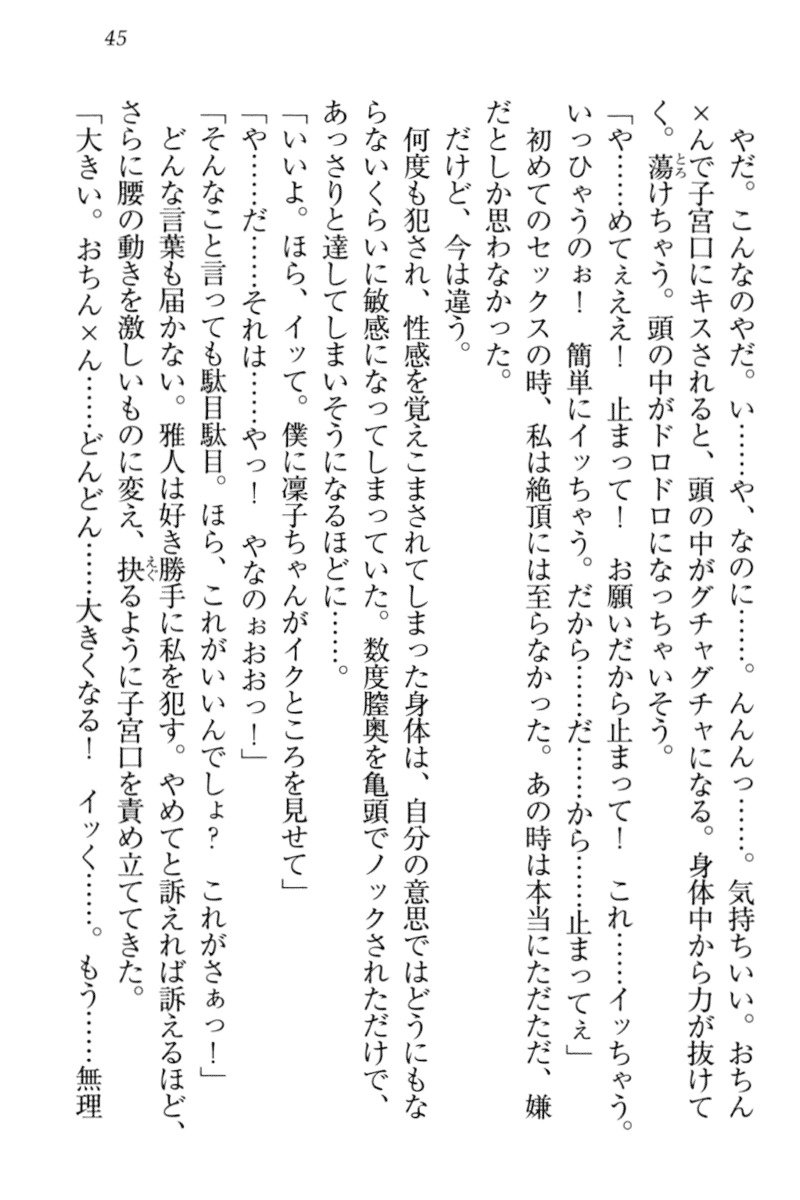 45
やだ。こんなのやだ。い……や、なのに……。んんんっ……。気持ちいい。おちん
×んで子宮口にキスされると、頭の中がグチャグチャになる。身体中から力が抜けて
く。蕩けちゃう。頭の中がドロドロになっちゃいそう。
「や……めてぇええ！　止まって！　お願いだから止まって！　これ……イッちゃう。
いっひゃうのぉ！　簡単にイッちゃう。だから……だ……から……止まってぇ」
初めてのセックスの時、私は絶頂には至らなかった。あの時は本当にただただ、嫌
だとしか思わなかった。
だけど、今は違う。
何度も犯され、性感を覚えこまされてしまった身体は、自分の意思ではどうにもな
らないくらいに敏感になってしまっていた。数度膣奥を亀頭でノックされただけで、
あっさりと達してしまいそうになるほどに……。
「いいよ。ほら、イッて。僕に凜子ちゃんがイクところを見せて」
「や……だ……それは……やっ！　やなのぉおおっ！」
「そんなこと言っても駄目駄目。ほら、これがいいんでしょ？　これがさぁっ！」
どんな言葉も届かない。雅人は好き勝手に私を犯す。やめてと訴えれば訴えるほど、
さらに腰の動きを激しいものに変え、抉るように子宮口を責め立ててきた。
「大きい。おちん×ん……どんどん……大きくなる！　イッく……。もう……無理